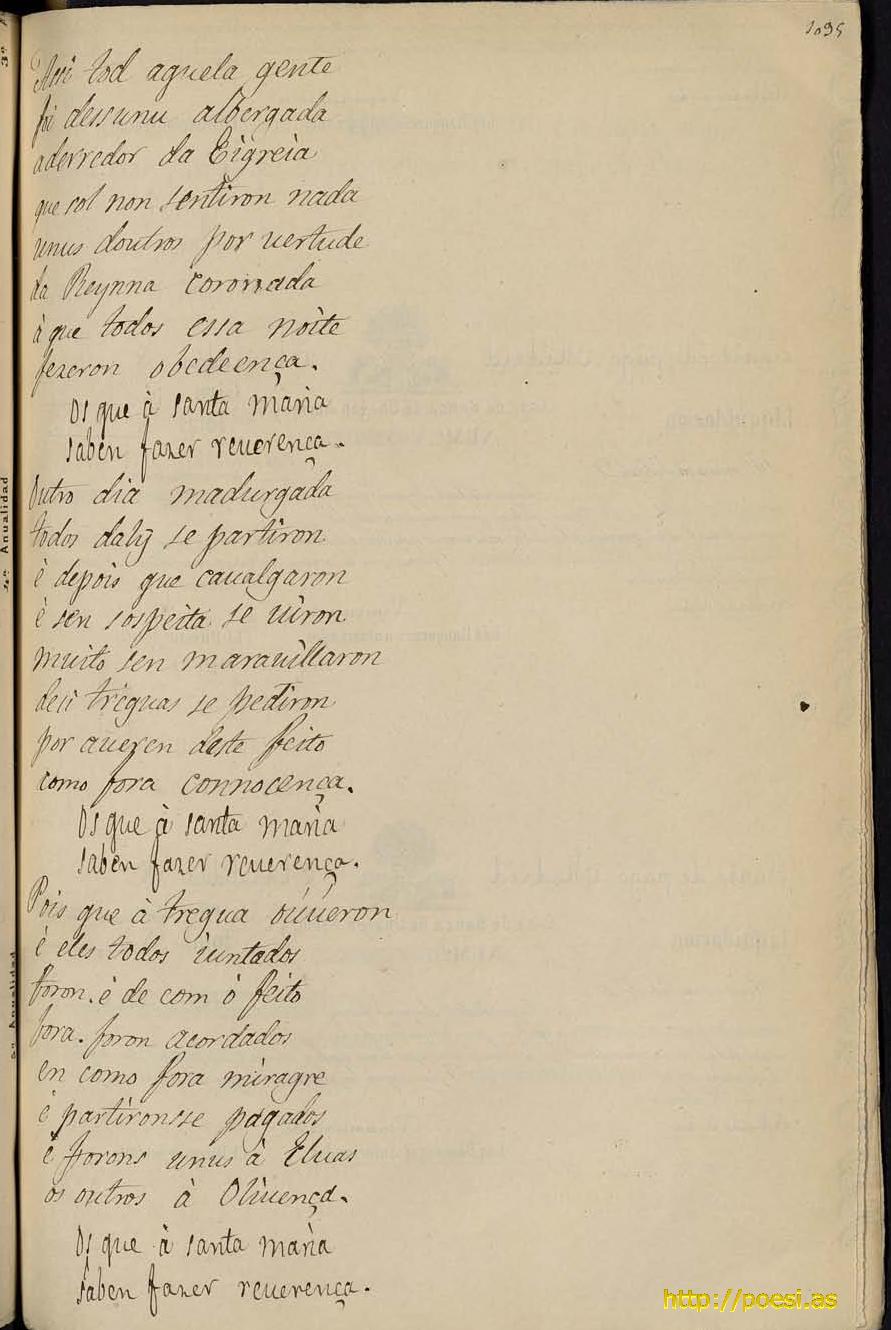 1095
Assi tod aquela gente
foi dessunu albergada
aderredor da Eigreia
que sol non sentiron nada
unus doutros por uertude
da Reynna coronada
à que todos essa noite
fezeron obedeença.
Os que à santa maria
saben fazer reuerença.
Outro dia madurgada
todos daly se partiron
è depois que caualgaron
è sen sospeita se uiron
muito sen marauillaron
desi treguas se pediron
por aueren deste feito
como fora connocença.
Os que à santa maria
saben fazer reuerença.
Pois que à tregua oúúeron
è eles todos iuntados
foron. è de com ò feito
fora. foron acordados
en como fora miragre
è partironsse pagados
è forons unus à Eluas
os outros à Oliuença.
Os que à santa maria
saben fazer reuerença.
http://poesi.as
3ª
4ª Anualidad
5ª Anualidad